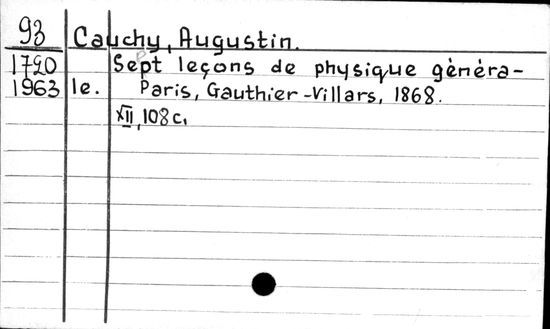 93 Cauchy, Augustin.
1720 Sept leçons de physique gènèra-
1963 le. Paris, Gauthier-Villars, 1868.
XII, 108c.